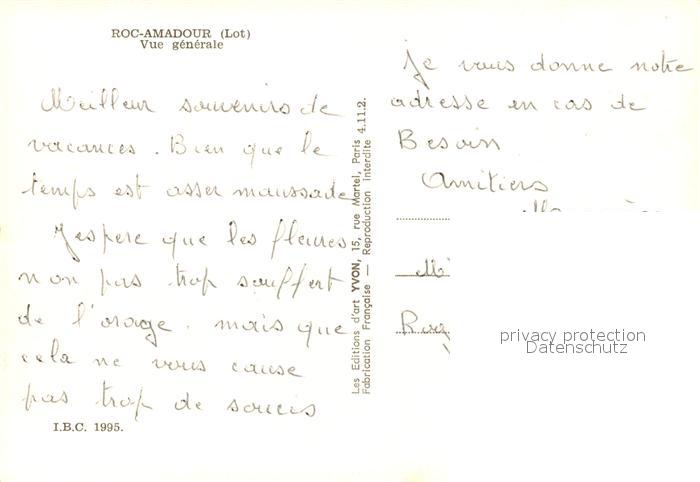 ROC-AMADOUR (Lot)
Vue générale
Meilleur souvenirs de
vacances. Bien que le
temps est asser maussade
J'espere que les fleures
non pas trop souffert
de l'orage. mais que
cela ne vous cause
pas trop de soucis
I.B.C. 1995.
Les Editions d'art YVON, 15, rue Martel, Paris 4.11.2.
Fabrication Française — Reproduction interdite
Je vous donne notre
adresse en cas de
Besoin
Amitiers
privacy protection
Datenschutz